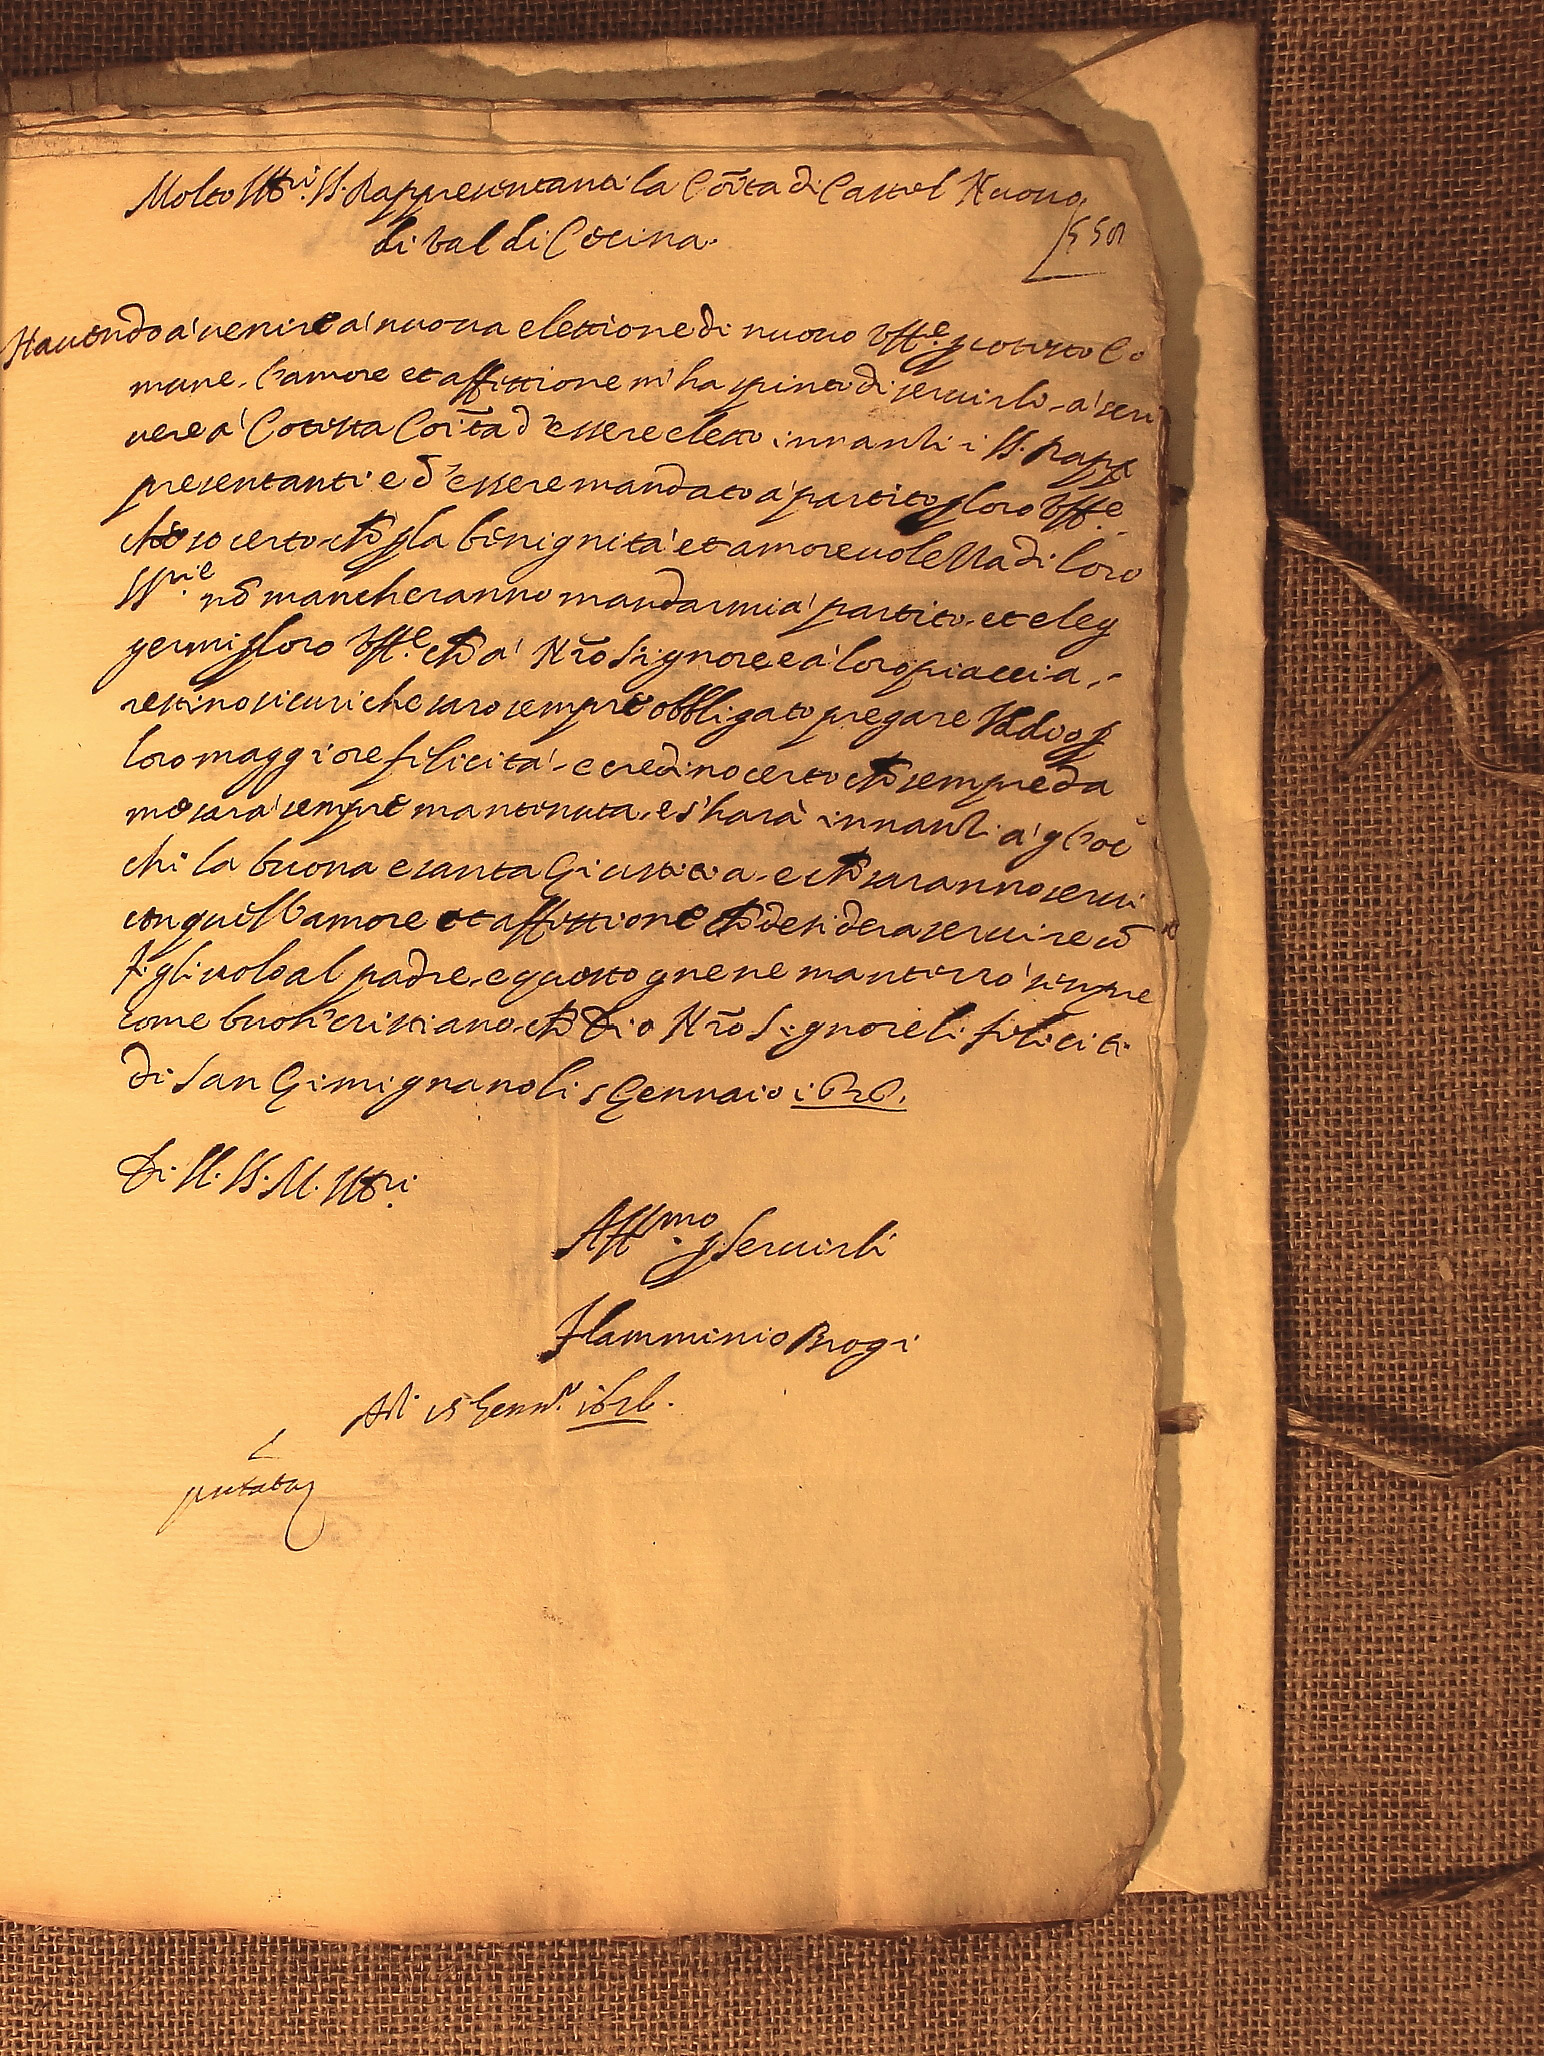 Molto Ill.ri SS. Rappresentanti la Cõita di Castel Nuouo
di Val di Cecina.
550
Hauendo à venire à nuoua elettione di nuouo Uff.e p cotesto Co
mune. l'amore et affettione m'ha spinto di seruirli a scri
uere à Cotesta Coĩta d'essere eletto innanti i SS. Rapp
presentanti e d'essere mandato à partito p loro Uff.e
so certo chẽ p la benignità et amoreuolezza di loro
SS.rie nõ mancheranno mandarmi à partito et eleg
germi p loro Uff.e chẽ à Nrõ Signore e à loro piaccia,
restino sicuri che saro sempre obbligato pregare Iddio p
loro maggiore filicità e credino certo chẽ sempre da
me sarà sempre mantenuta, e s'harà innanti à gl'oc
chi la buona e santa Giustitia e chẽ saranno serui
con quell'amore et affettione chẽ desidera seruire ũ
figliuolo al padre, e questo gnene manterrò sempre
come buon cristiano chẽ Dio Nrõ Signore li feliciti
di San Gimignano li 5 Gennaio 1626.
Di SS. SS. M. Ill.ri
Aff.mo p Seruirli
Flamminio Brogi
Adi 15 Genn.o 1626.